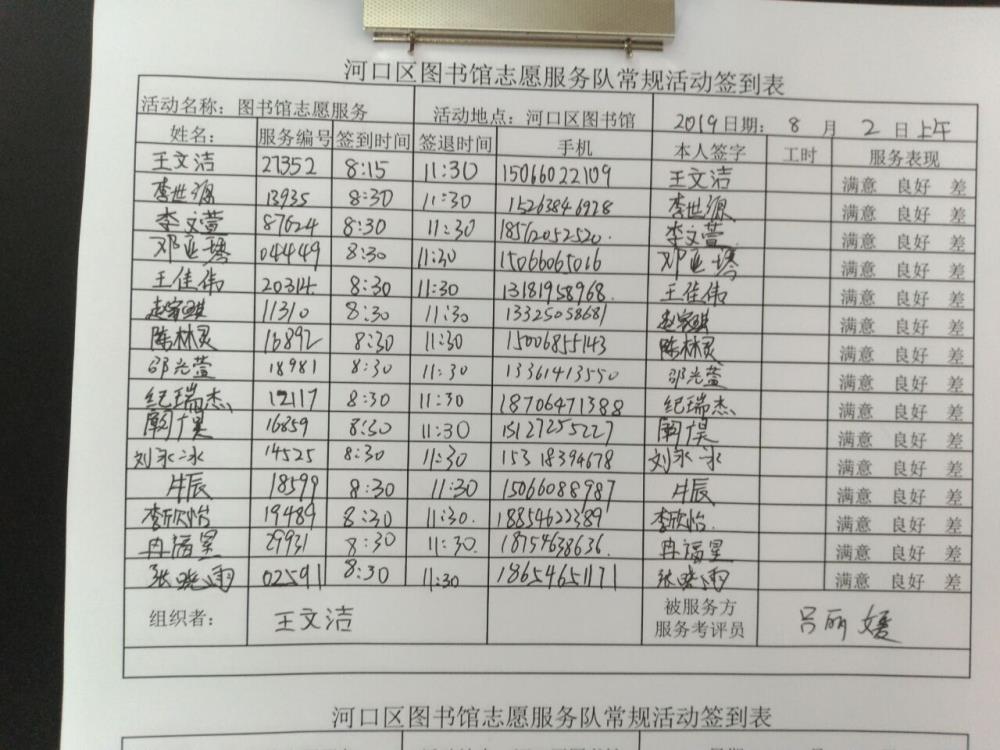 河口区图书馆志愿服务队常规活动签到表
活动名称：图书馆志愿服务 活动地点：河口区图书馆 2019日期： 8 月 2 日上午
姓名： 服务编号 签到时间 签退时间 手机 本人签字 工时 服务表现
王文洁 27352 8:15 11:30 15066022109 王文洁 满意 良好 差
李世源 13935 8:30 11:30 15263846928 李世源 满意 良好 差
李文萱 87624 8:30 11:30 18562052520. 李文萱 满意 良好 差
邓亚 04449 8:30 11:30 15066065016 邓亚 满意 良好 差
王佳伟 20314 8:30 11:30 13181958968. 王佳伟 满意 良好 差
赵家琪 11310 8:30 11:30 13325058681 赵家琪 满意 良好 差
陈林灵 16892 8:30 11:30 15006855143 陈林灵 满意 良好 差
邵光萱 18981 8:30 11:30 13361413550 邵光萱 满意 良好 差
纪瑞杰 12117 8:30 11:30 18706471388 纪瑞杰 满意 良好 差
16859 8:30 11:30 15127255227 满意 良好 差
刘永冰 14525 8:30 11:30 15318394678 刘永冰 满意 良好 差
牛辰 18599 8:30 11:30 15066088987 牛辰 满意 良好 差
李欣怡 19489 8:30 11:30. 18854622389 李欣怡. 满意 良好 差
冉福星 29931 8:30 11:30. 18754638636. 冉福星 满意 良好 差
张晓雨 02591 8:30 11:30 18654651171 张晓雨 满意 良好 差
组织者： 王文洁 被服务方 吕丽媛
服务考评员
河口区图书馆志愿服务队常规活动签到表